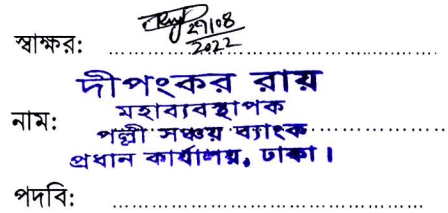 স্বাক্ষর: 29/08
2022
দীপংকর রায়
মহাব্যবস্থাপক
নাম:
পল্লী সঞ্চয় ব্যাংক
প্রধান কার্যালয়, ঢাকা।
পদবি: